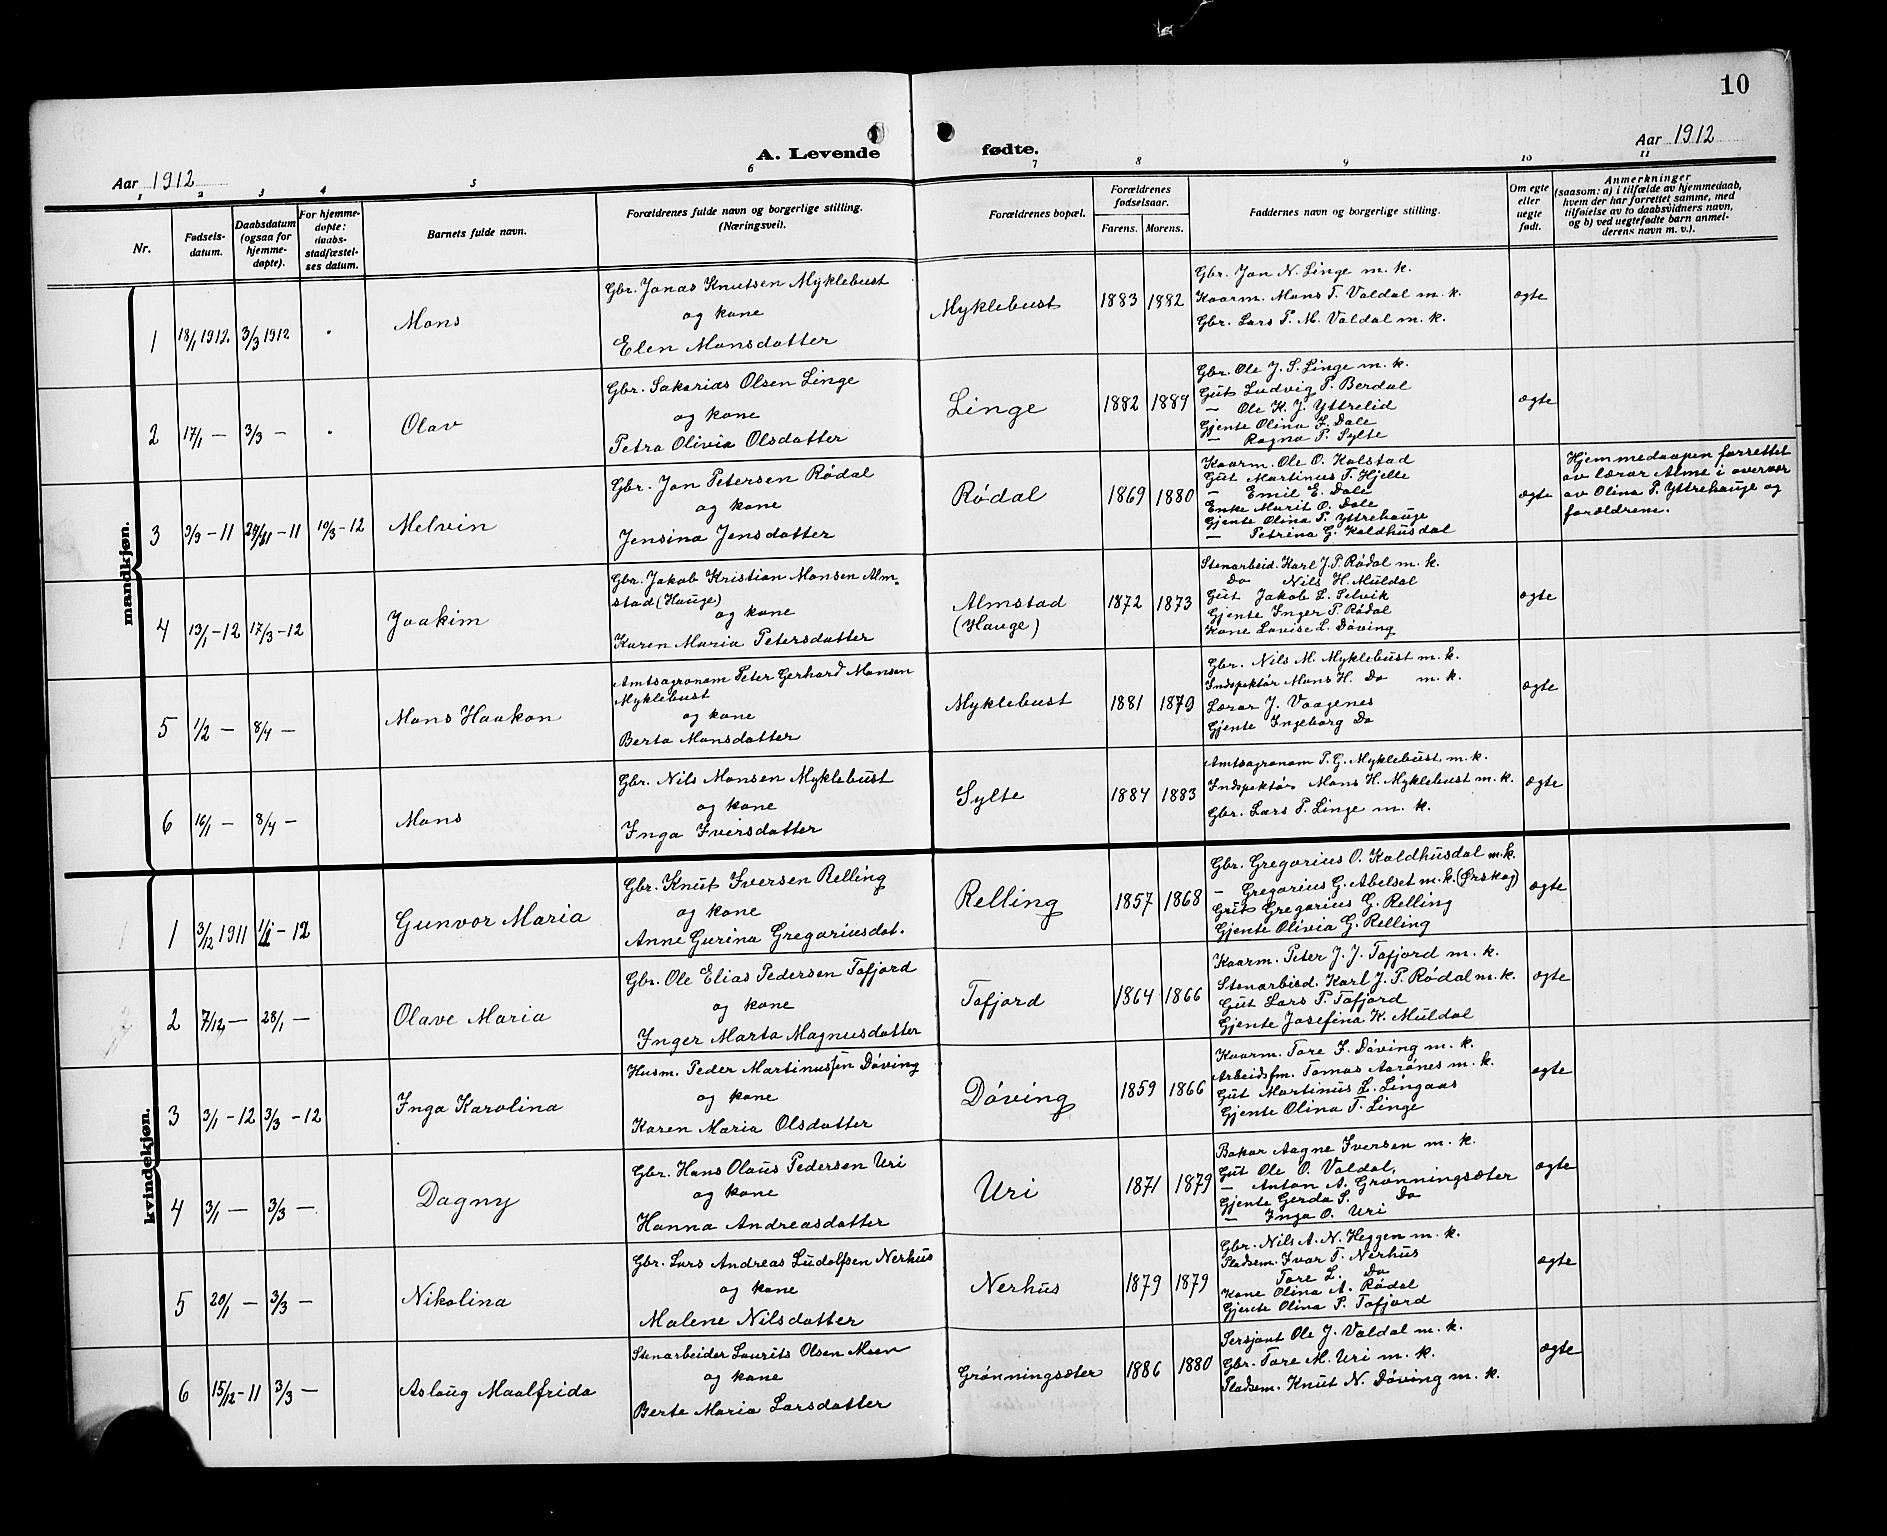 10
A. Levende fødte.
Aar 1912
Aar 1912
1 2 3 4 5 6 7 8 9 10 11
Nr.
Fødsels-
datum.
Daabsdatum
(ogsaa for
hjemme-
døpte).
For hjemme-
døpte:
daabs-
stadfæstel-
ses datum.
Barnets fulde navn.
Forældrenes fulde navn og borgerlige stilling.
(Næringsvei).
Forældrenes bopæl.
Forældrenes
fødselsaar.
Farens. Morens.
Faddernes navn og borgerlige stilling.
Om egte
eller
uegte
født.
Anmerkninger
(saasom: a) i tilfælde av hjemmedaab,
hvem der har forrettet samme, med
tilføielse av to daabsvidners navn,
og b) ved uegtefødte barn anmel-
derens navn m. v.).
mandkjøn.
1 18/1 1912. 3/3 1912 Mons
Gbr. Jonas Knutsen Myklebust
og kone
Elen Monsdatter
Myklebust 1883 1882
Gbr. Jon N. Linge m. k.
Kaarm. Mons T. Valdal m. k.
Gbr. Lars P. M. Valdal m. k.
egte
2 17/1 — 3/3 — Olav
Gbr. Sakarias Olsen Linge
og kone
Petra Olivia Olsdatter
Linge 1882 1889
Gbr. Ole J. S. Linge m. k.
Gut Ludvig P. Berdal
— Ole K. J. Yttrelid
Gjente Olina I. Dale
— Ragna P. Sylte
egte
3 3/9 — 11 — 11 10/3 — 12 Melvin
Gbr. Jon Petersen Rødal
og kone
Jensina Jensdatter
Rødal 1869 1880
Kaarm. Ole O. Kolstad
Gut Martinus T. Hjelle
— Emil E. Dale
Enke Marit O. Dale
Gjente Olina P. Yttrehauge
— Petrina G. Kaldhusdal
egte
Hjemmedaapen forrettet
av lærar Alme i overvær
av Olina P. Yttrehauge og
forældrene.
4 13/1 — 12 17/3 — 12 Joakim
Gbr. Jakob Kristian Monsen Alm-
stad (Hauge)
og kone
Karen Maria Petersdatter
Almstad
(Hauge)
1872 1873
Stenarbeid. Karl J. P. Rødal m. k.
Do Nils H. Muldal
Gut Jakob L. Selvik
Gjente Inger P. Rødal
Kone Lovise L. Døving
egte
5 1/2 — 8/4 — Mons Haakon
Amtsagronom Peter Gerhard Monsen
Myklebust
og kone
Berta Monsdatter
Myklebust 1881 1879
Gbr. Nils M. Myklebust m. k.
Indspektør Mons H. Do m. k.
Lærar J. Vaagenes
Gjente Ingeborg Do
egte
6 16/1 — 8/4 — Mons
Gbr. Nils Monsen Myklebust
og kone
Inga Iversdatter
Sylte 1884 1883
Amtsagronom P. G. Myklebust m. k.
Indspektør Mons H. Myklebust m. k.
Gbr. Lars P. Linge m. k.
egte
kvindekjøn.
1 3/12 1911 — 12 Gunvor Maria
Gbr. Knut Iversen Relling
og kone
Anne Gurina Gregoriusdat.
Relling 1857 1868
Gbr. Gregorius O. Kaldhusdal m. k.
— Gregorius G. Abelset m. k. (Ørskog)
Gut Gregorius G. Relling
Gjente Olivia G. Relling
egte
2 7/12 — 28/1 — Olave Maria
Gbr. Ole Elias Pedersen Tafjord
og kone
Inger Marta Magnusdatter
Tafjord 1864 1866
Kaarm. Peter J. J. Tafjord m. k.
Stenarbeid. Karl J. P. Rødal m. k.
Gut Lars P. Tafjord
Gjente Josefina K. Muldal
egte
3 3/1 — 12 3/3 — 12 Inga Karolina
Husm. Peder Martinussen Døving
og kone
Karen Maria Olsdatter
Døving 1859 1866
Kaarm. Tore I. Døving m. k.
Arbeidsfm. Tomas Aarønes m. k.
Gut Martinus L. Lingaas
Gjente Olina T. Linge
egte
4 3/1 — 3/3 — Dagny
Gbr. Hans Olaus Pedersen Uri
og kone
Hanna Andreasdatter
Uri 1871 1879
Bakar Aagne Iversen m. k.
Gut Ole O. Valdal,
— Anton A. Grønningsæter
Gjente Gerda S. Do
— Inga O. Uri
egte
5 20/1 — 3/3 — Nikolina
Gbr. Lars Andreas Ludolfsen Nerhus
og kone
Malene Nilsdatter
Nerhus 1879 1879
Gbr. Nils A. N. Heggen m. k.
Pladsem. Ivar T. Nerhus
Tore L. Do
Kone Olina A. Rødal
Gjente Olina P. Tafjord
egte
6 15/12 — 11 3/3 — Aslaug Maalfrida
Stenarbeider Laurits Olsen Moen
og kone
Berte Maria Larsdatter
Grønningsæter 1886 1880
Sersjant Ole J. Valdal m. k.
Gbr. Tore M. Uri m. k.
Pladsem. Knut N. Døving m. k.
egte